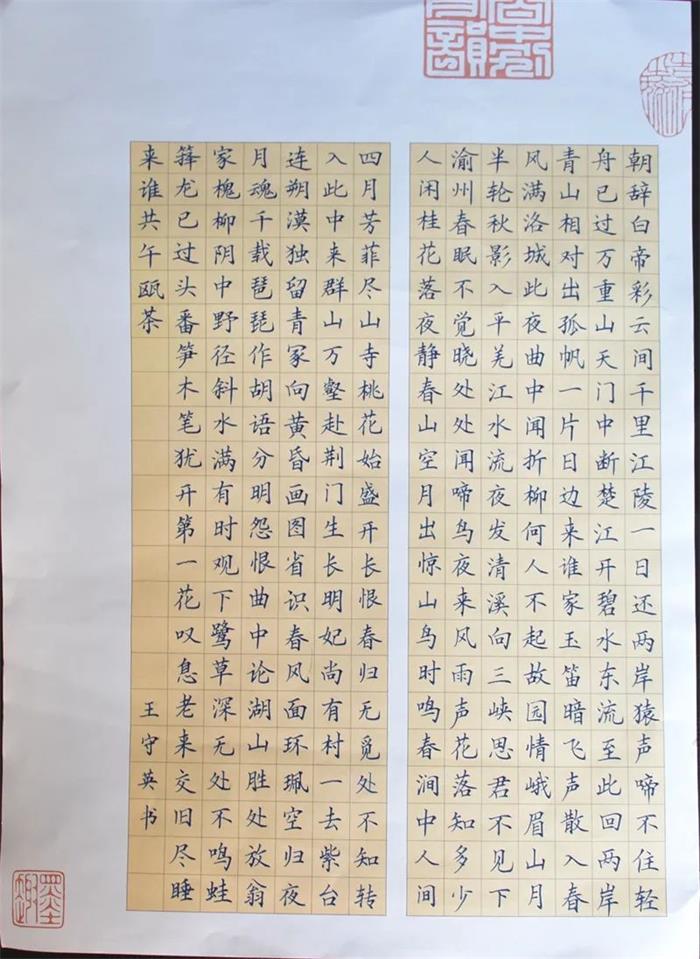 朝辞白帝彩云间千里江陵一日还两岸猿声啼不住轻
舟已过万重山天门中断楚江开碧水东流至此回两岸
青山相对出孤帆一片日边来谁家玉笛暗飞声散入春
风满洛城此夜曲中闻折柳何人不起故园情峨眉山月
半轮秋影入平羌江水流夜发清溪向三峡思君不见下
渝州春眠不觉晓处处闻啼鸟夜来风雨声花落知多少
人闲桂花落夜静春山空月出惊山鸟时鸣春涧中人间
四月芳菲尽山寺桃花始盛开长恨春归无觅处不知转
入此中来群山万壑赴荆门生长明妃尚有村一去紫台
连朔漠独留青冢向黄昏画图省识春风面环珮空归夜
月魂千载琵琶作胡语分明怨恨曲中论湖山胜处放翁
家槐柳阴中野径斜水满有时观下鹭草深无处不鸣蛙
箨龙已过头番笋木笔犹开第一花叹息老来交旧尽睡
来谁共午瓯茶 王守英书
墨趣